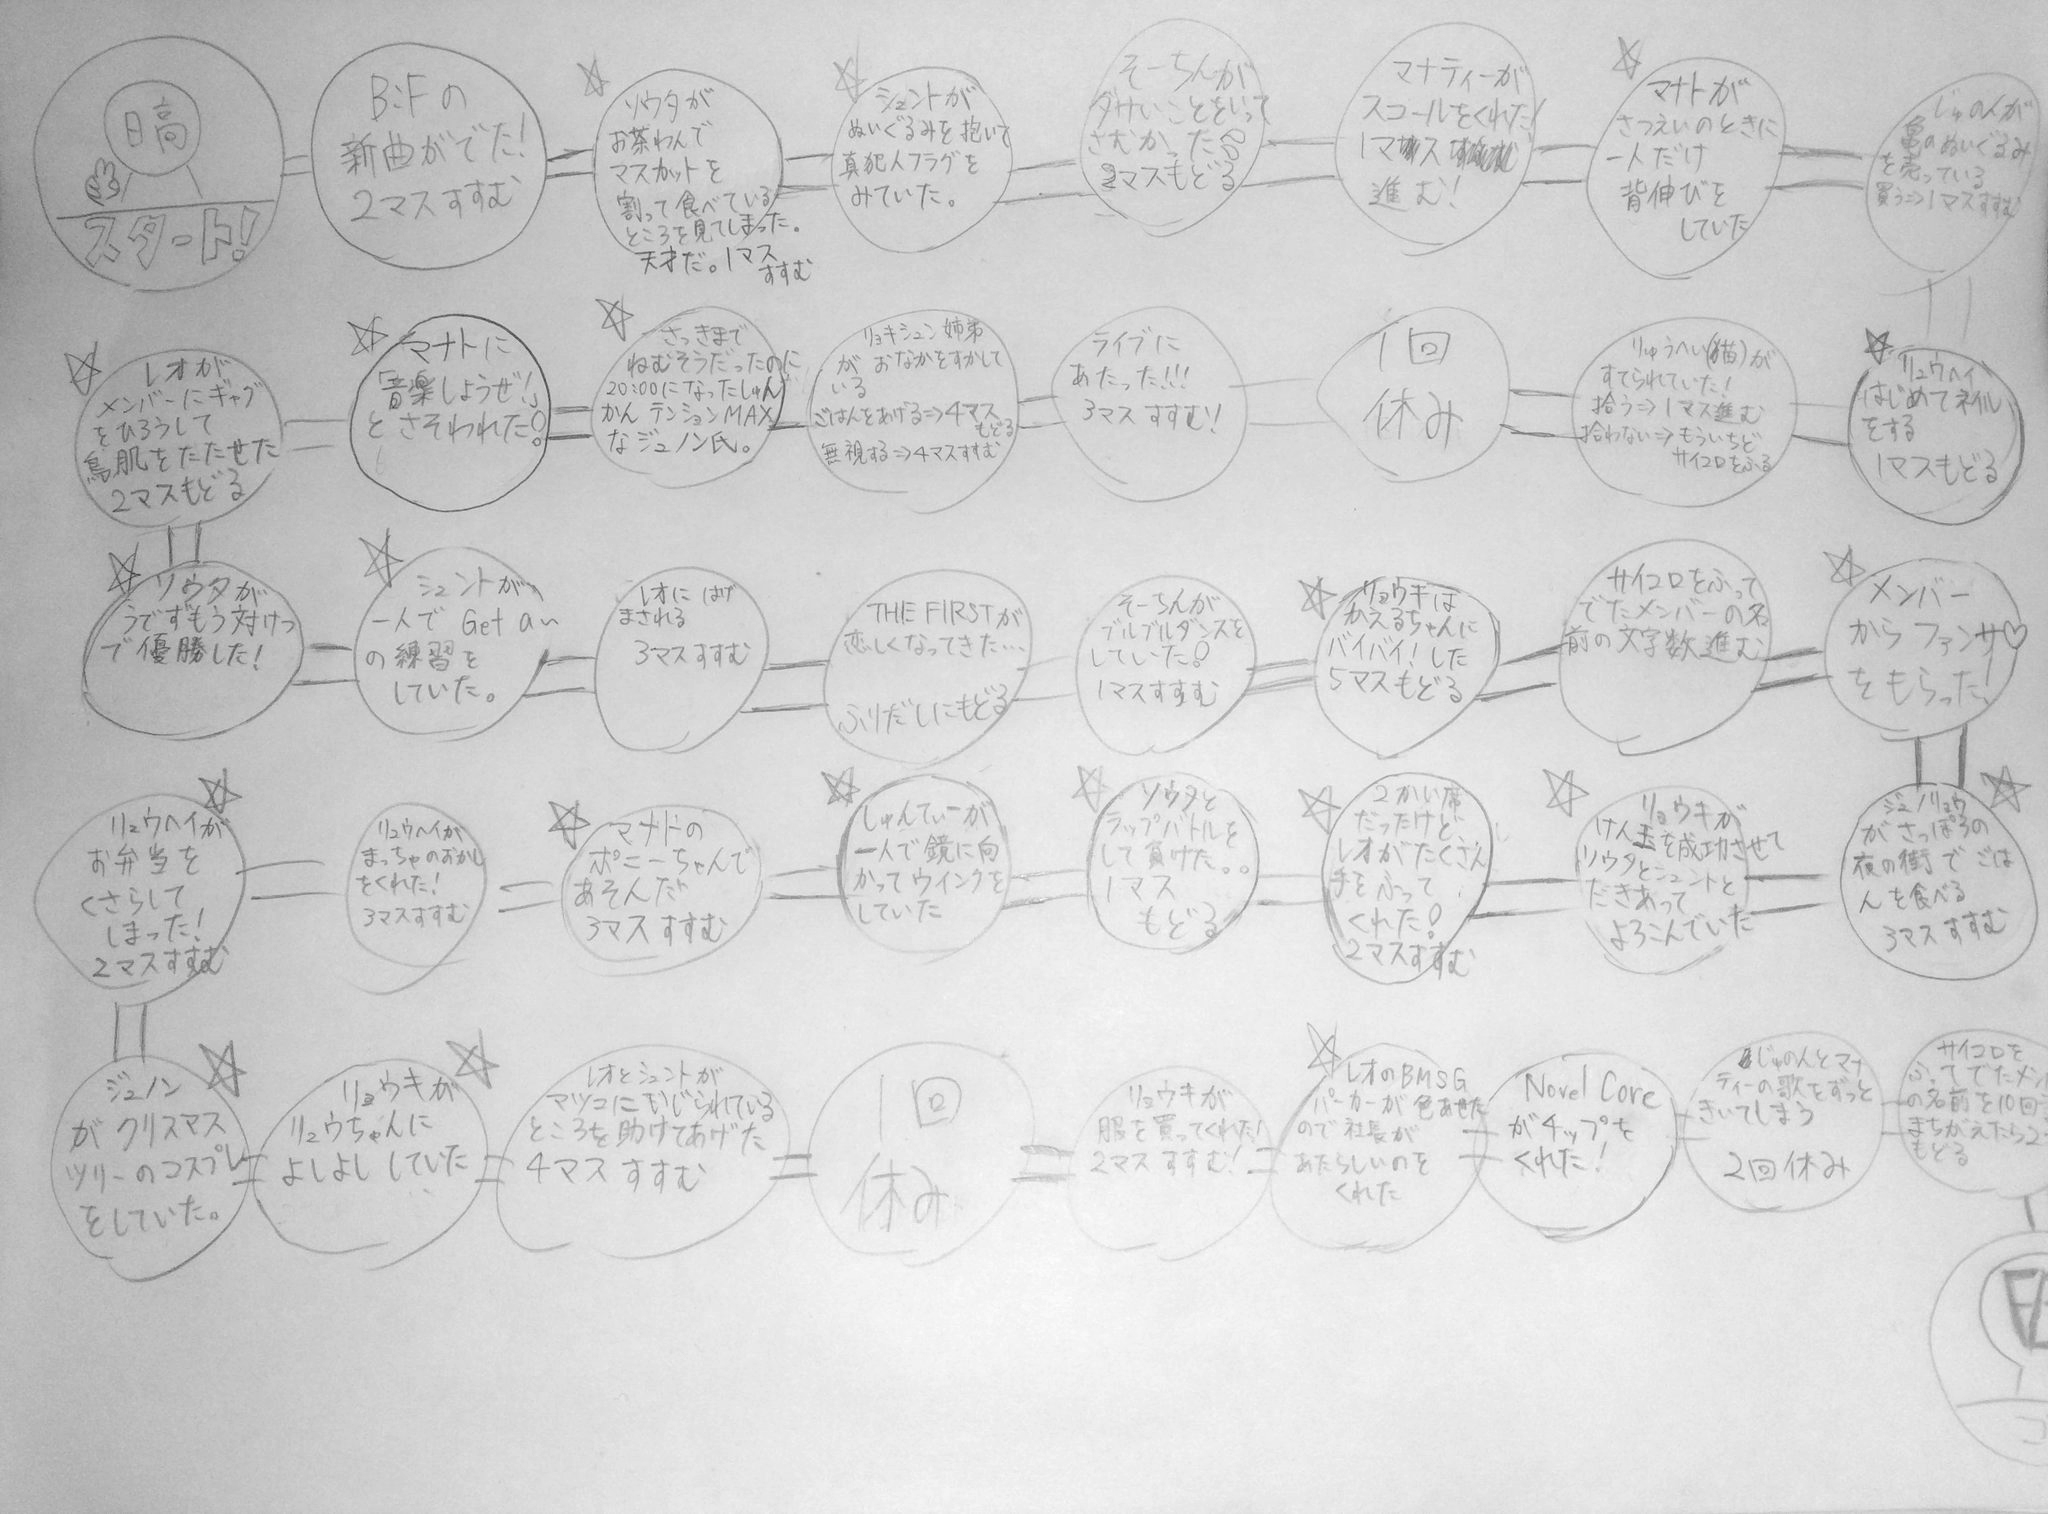 日高
スタート!
B:Fの
新曲がでた!
2マスすすむ
ソウタが
お茶わんで
マスカットを
割って食べている
ところを見てしまった。
天才だ。1マス
すすむ
シュントが
ぬいぐるみを抱いて
真犯人フラグを
みていた。
そーちんが
ダサいことをいって
さむかった
2マスもどる
マナティーが
スコールをくれた!
1マス
進む!
マナトが
さつえいのときに
一人だけ
背伸びを
していた
じゅの人が
亀のぬいぐるみ
を売っている
買う⇒1マスすすむ
リュウヘイ
はじめてネイル
をする
1マスもどる
りゅうへい(猫)が
すてられていた!
拾う⇒1マス進む
拾わない⇒もういちど
サイコロをふる
1回
休み
ライブに
あたった!!!
3マスすすむ!
リョキシュン姉弟
が おなかをすかして
いる
ごはんをあげる⇒4マス
もどる
無視する⇒4マスすすむ
さっきまで
ねむそうだったのに
20:00になったしゅん
かん テンションMAX
なジュノン氏。
マナトに
「音楽しようぜ!」
とさそわれた!
レオが
メンバーにギャグ
をひろうして
鳥肌をたたせた
2マスもどる
ソウタが
うでずもう対けつ
で優勝した!
シュントが
一人で Get a~
の練習を
していた。
レオに はげ
まされる
3マスすすむ
THE FIRSTが
恋しくなってきた…
ふりだしにもどる
そーちんが
ブルブルダンスを
していた!
1マスすすむ
リョウキは
かえるちゃんに
バイバイ!した
5マスもどる
サイコロをふって
でたメンバーの名
前の文字数進む
メンバー
からファンサ♡
をもらった!
ジュノリュウ
がさっぽろの
夜の街でごは
んを食べる
3マスすすむ
リョウキが
けん玉を成功させて
ソウタとシュントと
だきあって
よろこんでいた
2かい席
だったけど
レオがたくさん
手をふって
くれた!
2マスすすむ
ソウタと
ラップバトルを
して負けた。。
1マス
もどる
しゅんてぃーが
一人で鏡に向
かってウインクを
していた
マナトの
ポニーちゃんで
あそんだ
3マスすすむ
リュウヘイが
まっちゃのおかし
をくれた!
3マスすすむ
リュウヘイが
お弁当を
くさらして
しまった!
2マスすすむ
ジュノン
がクリスマス
ツリーのコスプレ
をしていた。
リョウキが
リュウちゃんに
よしよし していた
レオとシュントが
マツコにいじられている
ところを助けてあげた
4マスすすむ
1回
休み
リョウキが
服を買ってくれた!
2マスすすむ!
レオのBMSG
パーカーが色あせた
ので社長が
あたらしいのを
くれた
Novel Core
がチップを
くれた!
じゅの人とマナ
ティーの歌をずっと
きいてしまう
2回休み
サイコロを
ふってでたメン
の名前を10回
まちがえたら2
もどる